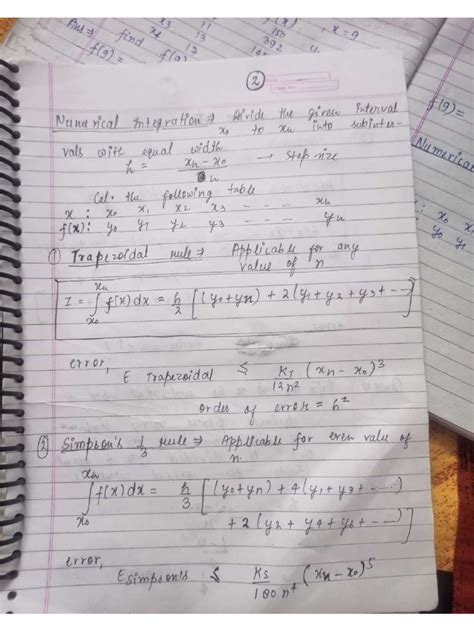 Ans ⇒ find
f(9) =
x3
x4
11
12
13
f(x)
150
392
x = 9
f(9) =
Numerical
②
Numerical Integration ⇒ Divide the given interval
x0 to xn into subinter-
vals with equal width
h = (xn - x0)/n → step size
Cal. the following table
x : x0 x1 x2 x3 - - - - xn
f(x): y0 y1 y2 y3 - - - - yn
① Trapezoidal rule ⇒ Applicable for any
value of n
I = ∫_{x0}^{xn} f(x) dx = h/2 [(y0+yn) + 2(y1 + y2 + y3 + - --)]
error,
E Trapezoidal ≤ KT/12n² (xn - x0)³
Order of error = h²
② Simpson's 1/3 rule ⇒ Applicable for even value of
n.
∫_{x0}^{xn} f(x) dx = h/3 [(y0+yn) + 4(y1 + y3 + ---..)
+ 2(y2 + y4 + y6 + - --)]
error,
E simpson's ≤ Ks/180n⁴ (xn - x0)⁵